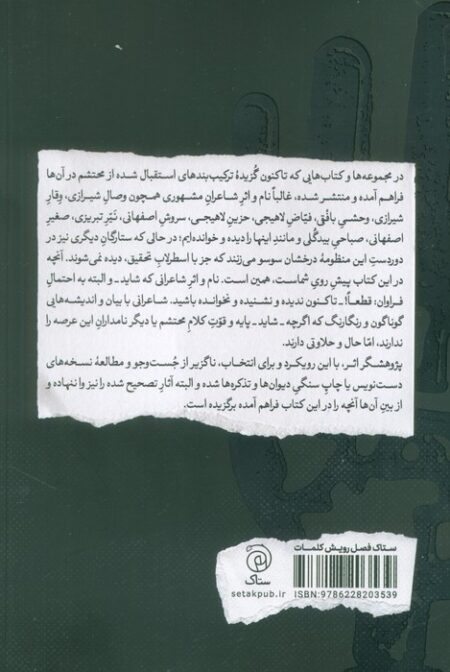 در مجموعه‌ها و کتاب‌هایی که تاکنون گزیدهٔ ترکیب‌بندهای استقبال شده از محتشم در آن‌ها
فراهم آمده و منتشر شده، غالباً نام و اثرِ شاعرانِ مشهوری همچون وصالِ شیرازی، وِقارِ
شیرازی، وحشیِ بافقی، فیّاضِ لاهیجی، حزینِ لاهیجی، سروشِ اصفهانی، نَیّرِ تبریزی، صغیرِ
اصفهانی، صباحیِ بیدگلی و مانندِ اینها را دیده و خوانده‌ایم؛ در حالی که ستارگانِ دیگری نیز در
دوردستِ این منظومهٔ درخشان سوسو می‌زنند که جز با اسطرلابِ تحقیق، دیده نمی‌شوند. آنچه
در این کتاب پیشِ رویِ شماست، همین است. نام و اثرِ شاعرانی که شاید ـ و البته به احتمالِ
فراوان: قطعاً! ـ تاکنون ندیده و نشنیده و نخوانده باشید. شاعرانی با بیان و اندیشه‌هایی
گوناگون و رنگارنگ که اگرچه ـ شاید ـ پایه و قوّتِ کلامِ محتشم یا دیگر نامدارانِ این عرصه را
ندارند، امّا حال و حلاوتی دارند.
پژوهشگرِ اثر، با این رویکرد و برای انتخاب، ناگزیر از جُست‌وجو و مطالعهٔ نسخه‌های
دست‌نویس یا چاپِ سنگیِ دیوان‌ها و تذکره‌ها شده و البته آثارِ تصحیح شده را نیز وا ننهاده و
از بینِ آن‌ها آنچه را در این کتاب فراهم آمده برگزیده است.
ستاک فصل رویش کلمات
ستاک
setakpub.ir
ISBN: 9786228203539